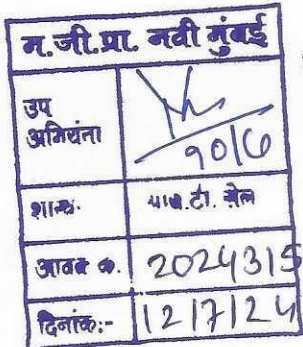 म.जी.प्रा. नवी मुंबई
उप
अभियंता
१०/७
शाखा.
आवक क्र.
2024315
दिनांक:-
12/7/24